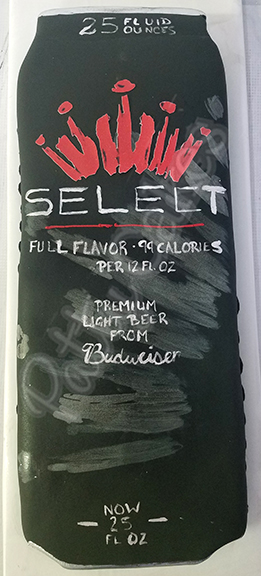 25 FLUID OUNCES
SELECT
FULL FLAVOR · 99 CALORIES
PER 12 FL. OZ
PREMIUM
LIGHT BEER
FROM
Budweiser
NOW
— 25 —
FL OZ